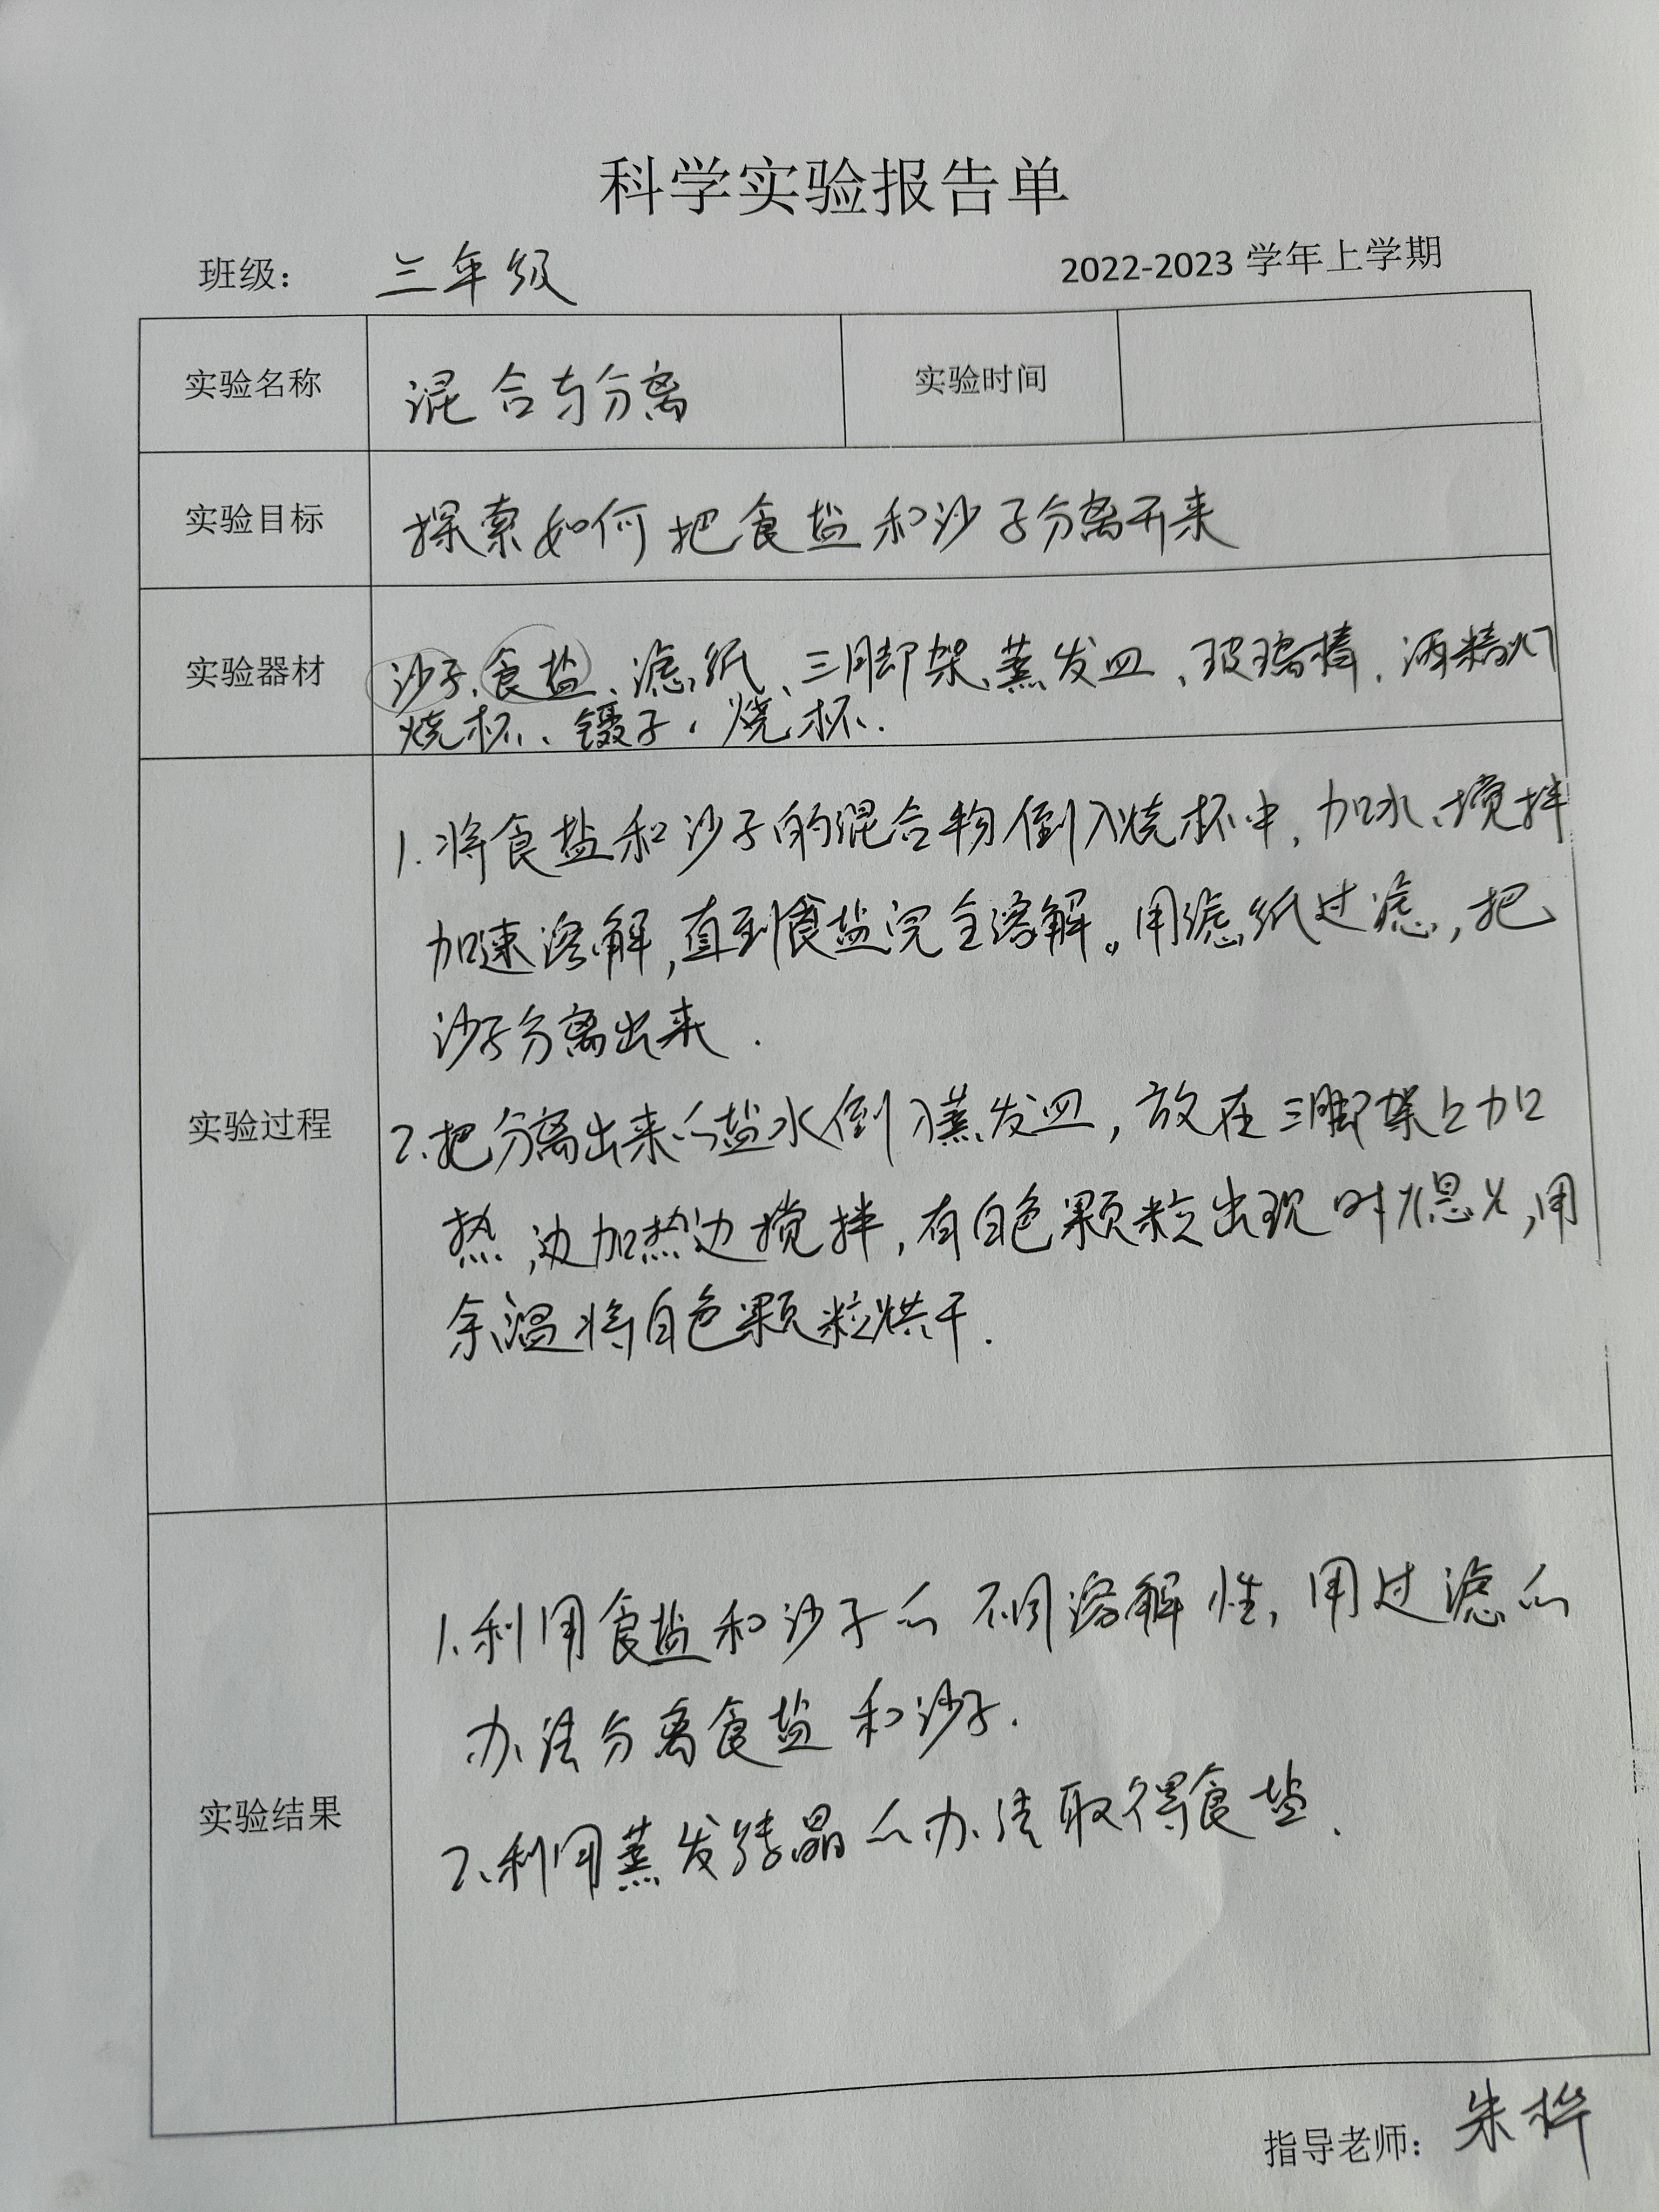 科学实验报告单
班级： 三年级 2022-2023 学年上学期
实验名称 混合与分离 实验时间
实验目标 探索如何把食盐和沙子分离开来
实验器材 沙子、食盐、滤纸、三脚架、蒸发皿、玻璃棒、酒精灯
烧杯、镊子、烧杯.
1.将食盐和沙子的混合物倒入烧杯中，加水、搅拌
加速溶解，直到食盐完全溶解。用滤纸过滤，把
沙子分离出来.
实验过程
2.把分离出来的盐水倒入蒸发皿，放在三脚架上加
热，边加热边搅拌，有白色颗粒出现时熄火，用
余温将白色颗粒烘干.
1.利用食盐和沙子的不同溶解性，用过滤的
办法分离食盐和沙子.
实验结果
2.利用蒸发结晶的办法取得食盐.
指导老师： 朱桦